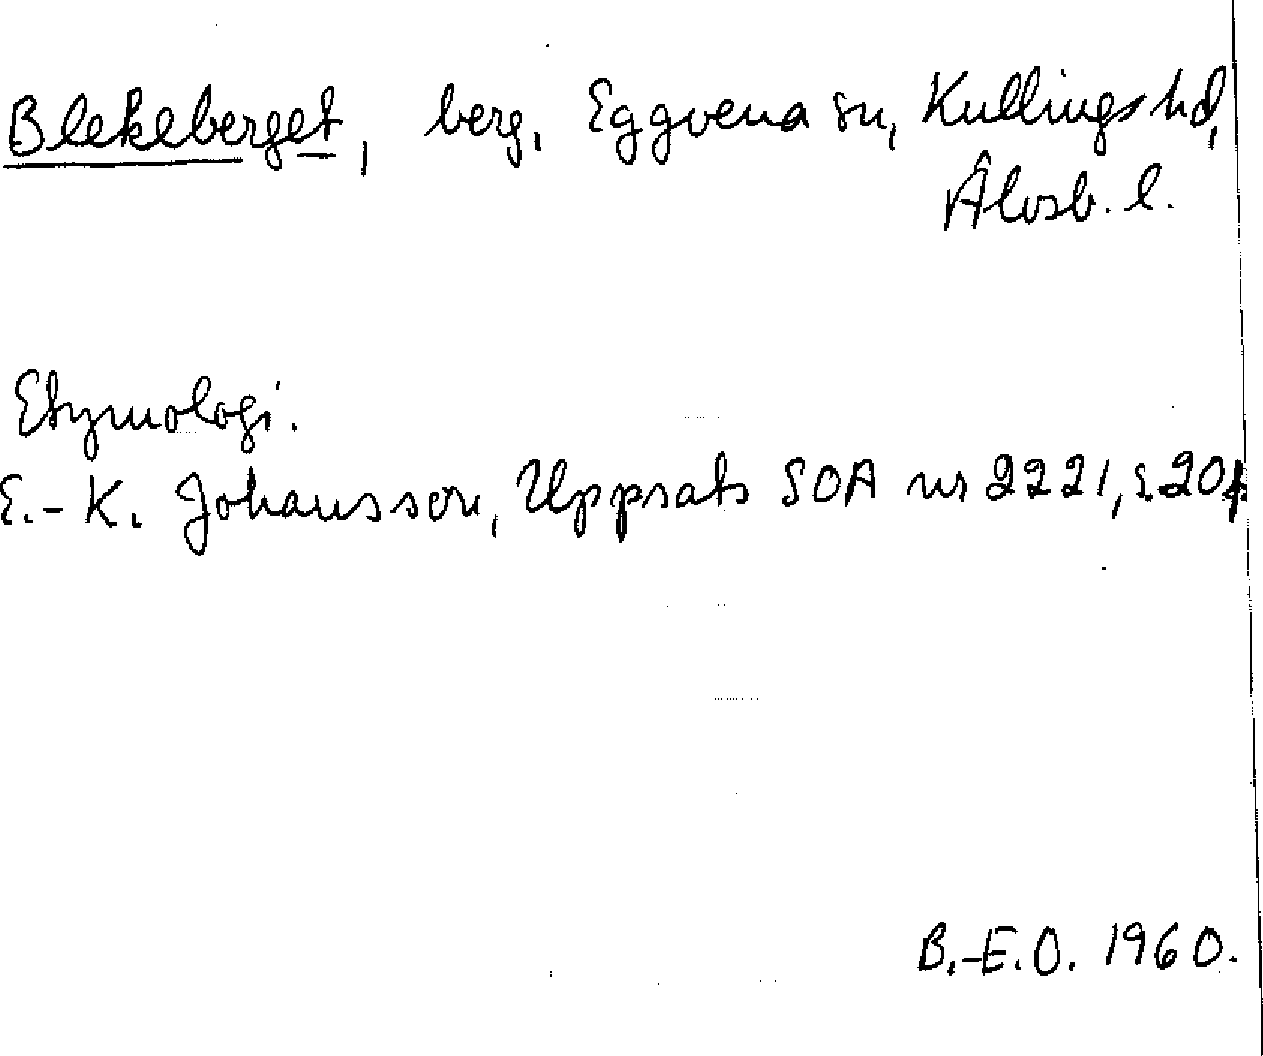 Blekeberget, berg, Eggvena sn, Kullings hd,
Älvsb. l.
Etymologi.
E.-K. Johansson, Uppsats SOA nr 2221, s. 20f
B.-E.O. 1960.